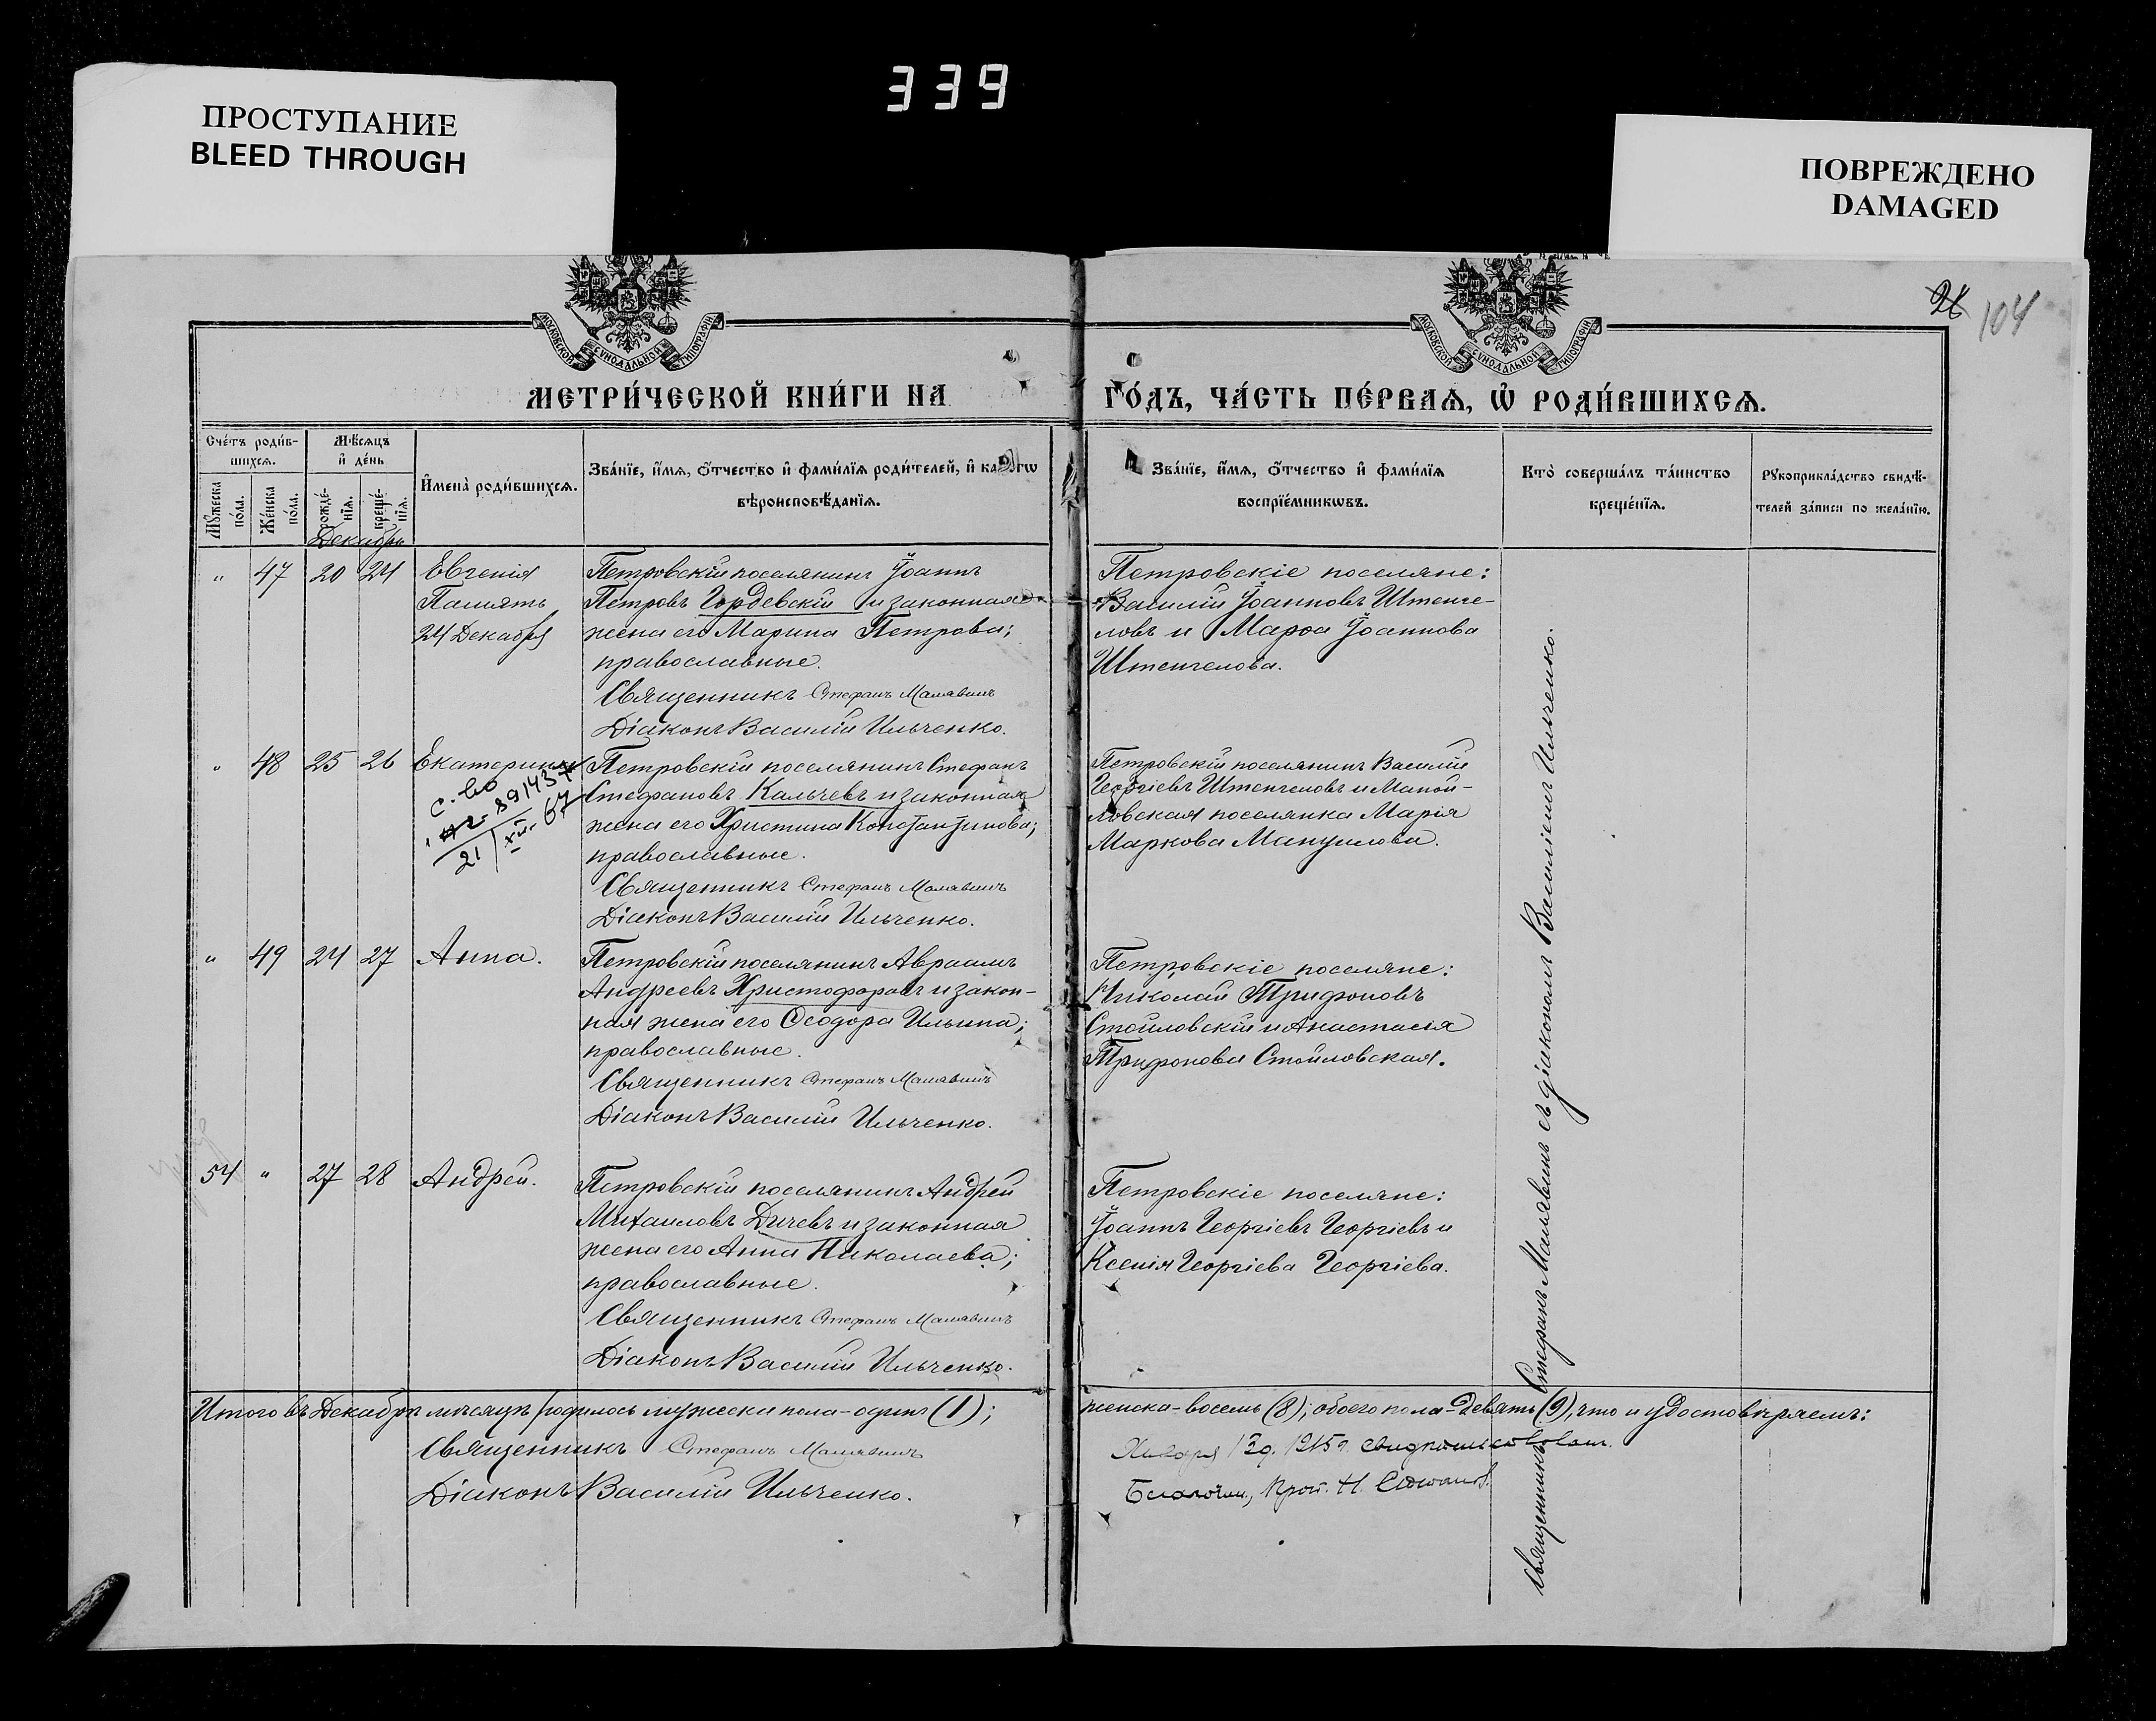 339
ПРОСТУПАНИЕ
BLEED THROUGH
ПОВРЕЖДЕНО
DAMAGED
104
МОСКОВСКОЙ СѴНОДАЛЬНОЙ ТИПОГРАФІИ
МОСКОВСКОЙ СѴНОДАЛЬНОЙ ТИПОГРАФІИ
МЕТРИ́ЧЕСКОЙ КНИ́ГИ НА ГО́ДЪ, ЧА́СТЬ ПЕ́РВАѦ, Ѡ҆ РОДИ́ВШИХСѦ.
Сче́тъ роди́в-
шихсѧ.
Мѣ́сѧцъ
и҆ де́нь
Мꙋ́жеска
по́ла.
Же́нска
по́ла.
рожде́-
нїѧ.
креще́-
нїѧ.
И҆мена̀ роди́вшихсѧ.
Зва́нїе, и҆́мѧ, ѻ҆́тчество и҆ фами́лїѧ роди́телей, и҆ како́гѡ
вѣроисповѣ́данїѧ.
Зва́нїе, и҆́мѧ, ѻ҆́тчество и҆ фами́лїѧ
воспрїе́мникѡвъ.
Кто̀ соверша́лъ та́инство
креще́нїѧ.
Рꙋкоприкла́дство свидѣ́-
телей за́писи по жела́нїю.
Декабрь
" 47 20 24 Евгенія
Память
24 Декабря
Петровскій поселянинъ Іоаннъ
Петровъ Гордевскій и законная
жена его Марина Петрова;
православные.
Священникъ Стефанъ Малявинъ
Діаконъ Василій Ильченко.
Петровскіе поселяне:
Василій Іоанновъ Штенге-
ловъ и Марѳа Іоаннова
Штенгелова.
" 48 25 26 Екатерина
89143
21/XII-67
Петровскій поселянинъ Стефанъ
Стефановъ Кальчевъ и законная
жена его Христина Константинова;
православные.
Священникъ Стефанъ Малявинъ
Діаконъ Василій Ильченко.
Петровскій поселянинъ Василій
Георгіевъ Штенгеловъ и Маной-
ловская поселянка Марія
Маркова Мануилова.
" 49 24 27 Анна.
Петровскій поселянинъ Авраамъ
Андреевъ Христофоровъ и закон-
ная жена его Ѳеодора Ильина;
православные.
Священникъ Стефанъ Малявинъ
Діаконъ Василій Ильченко.
Петровскіе поселяне:
Николай Трифоновъ
Стойловскій и Анастасія
Трифонова Стойловская.
54 " 27 28 Андрей.
Петровскій поселянинъ Андрей
Михаиловъ Дичевъ и законная
жена его Анна Николаева;
православные.
Священникъ Стефанъ Малявинъ
Діаконъ Василій Ильченко.
Петровскіе поселяне:
Іоаннъ Георгіевъ Георгіевъ и
Ксенія Георгіева Георгіева.
Священникъ Стефанъ Малявинъ съ діакономъ Василіемъ Ильченко.
Итого въ Декабрѣ мѣсяцѣ родилось мужеска пола-одинъ (1); женска-восемь (8); обоего пола-девять (9), что и удостовѣряемъ:
Священникъ Стефанъ Малявинъ
Діаконъ Василій Ильченко.
Января 13 д. 1915 г.
Благочин, Прот. Н.